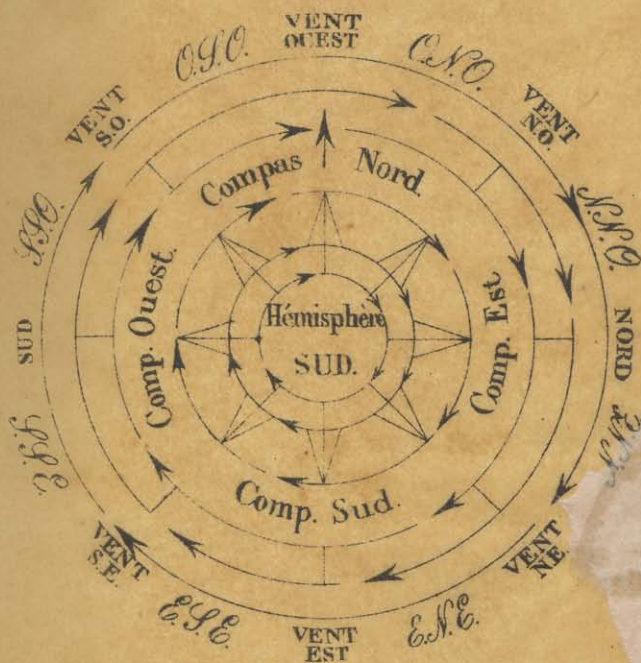 VENT
OUEST
O.N.O.
VENT
N.O.
N.N.O.
NORD
VENT
NE.
E.N.E.
VENT
EST
E.S.E.
VENT
S.E.
SUD
S.S.O.
VENT
S.O.
O.S.O.
Compas Nord.
Comp. Est
Comp. Sud.
Comp. Ouest.
Hémisphère
SUD.